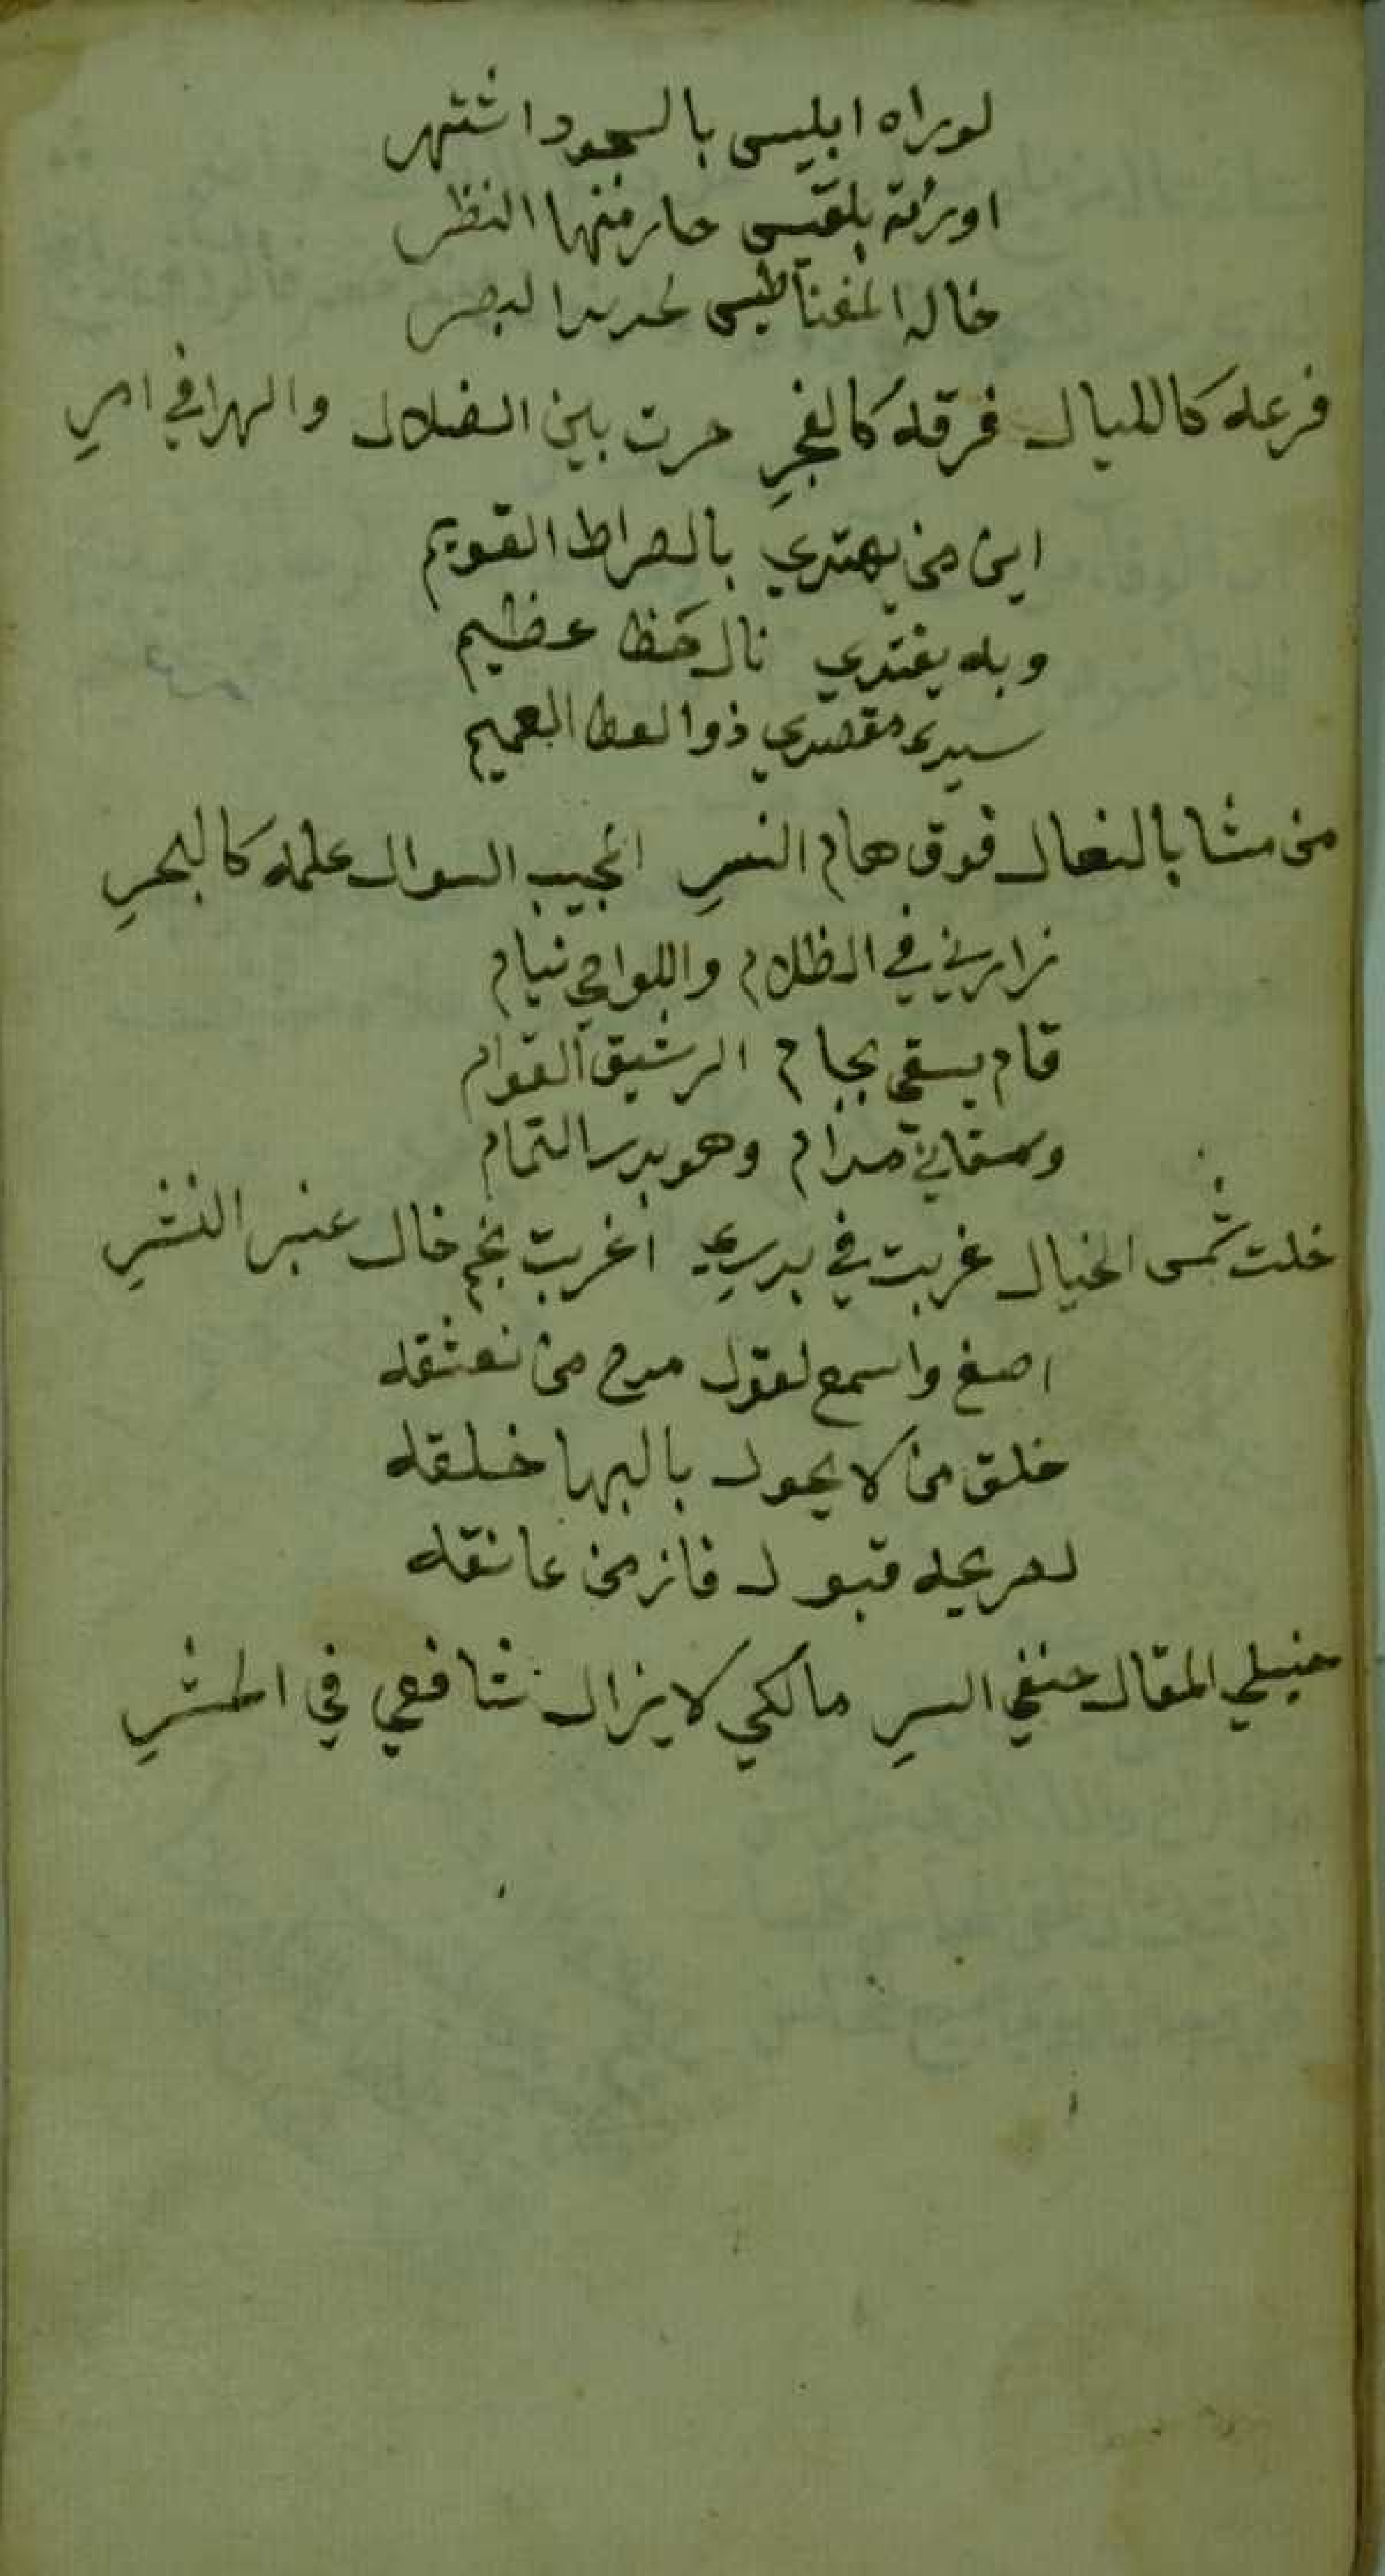 لو يراه ابليس بالسجود اشتهر
او رأته بلقيس حار منها النظر
خاله المغناطيس لحديد البصر
فرعه كالليال فرقه كالفجرِ حرت بين الضلال والهدا في امرِ
اين من يهتدي بالصراط القويم
وبه يقتدي نال حظا عظيم
سيدي مقصدي ذو العطا العميم
من مشا بالنعال فوق هام النسرِ المجيب السوال علمه كالبحرِ
زارني في الظلام واللواحي نيام
قام يسقي بجام الرشيق القوام
وسقاني مدام وهو بدر التمام
خلت شمس الخيال غربت في بدري اغربت نجم خال عنبر النشرِ
اصغ واسمع لقول مدح من نعشقه
خلق من لا يحول بالبها خلقه
فاز من عانقه قبول
حنبلي المقال حنفي السرِ مالكي لا يزال شافعي في الحشرِ